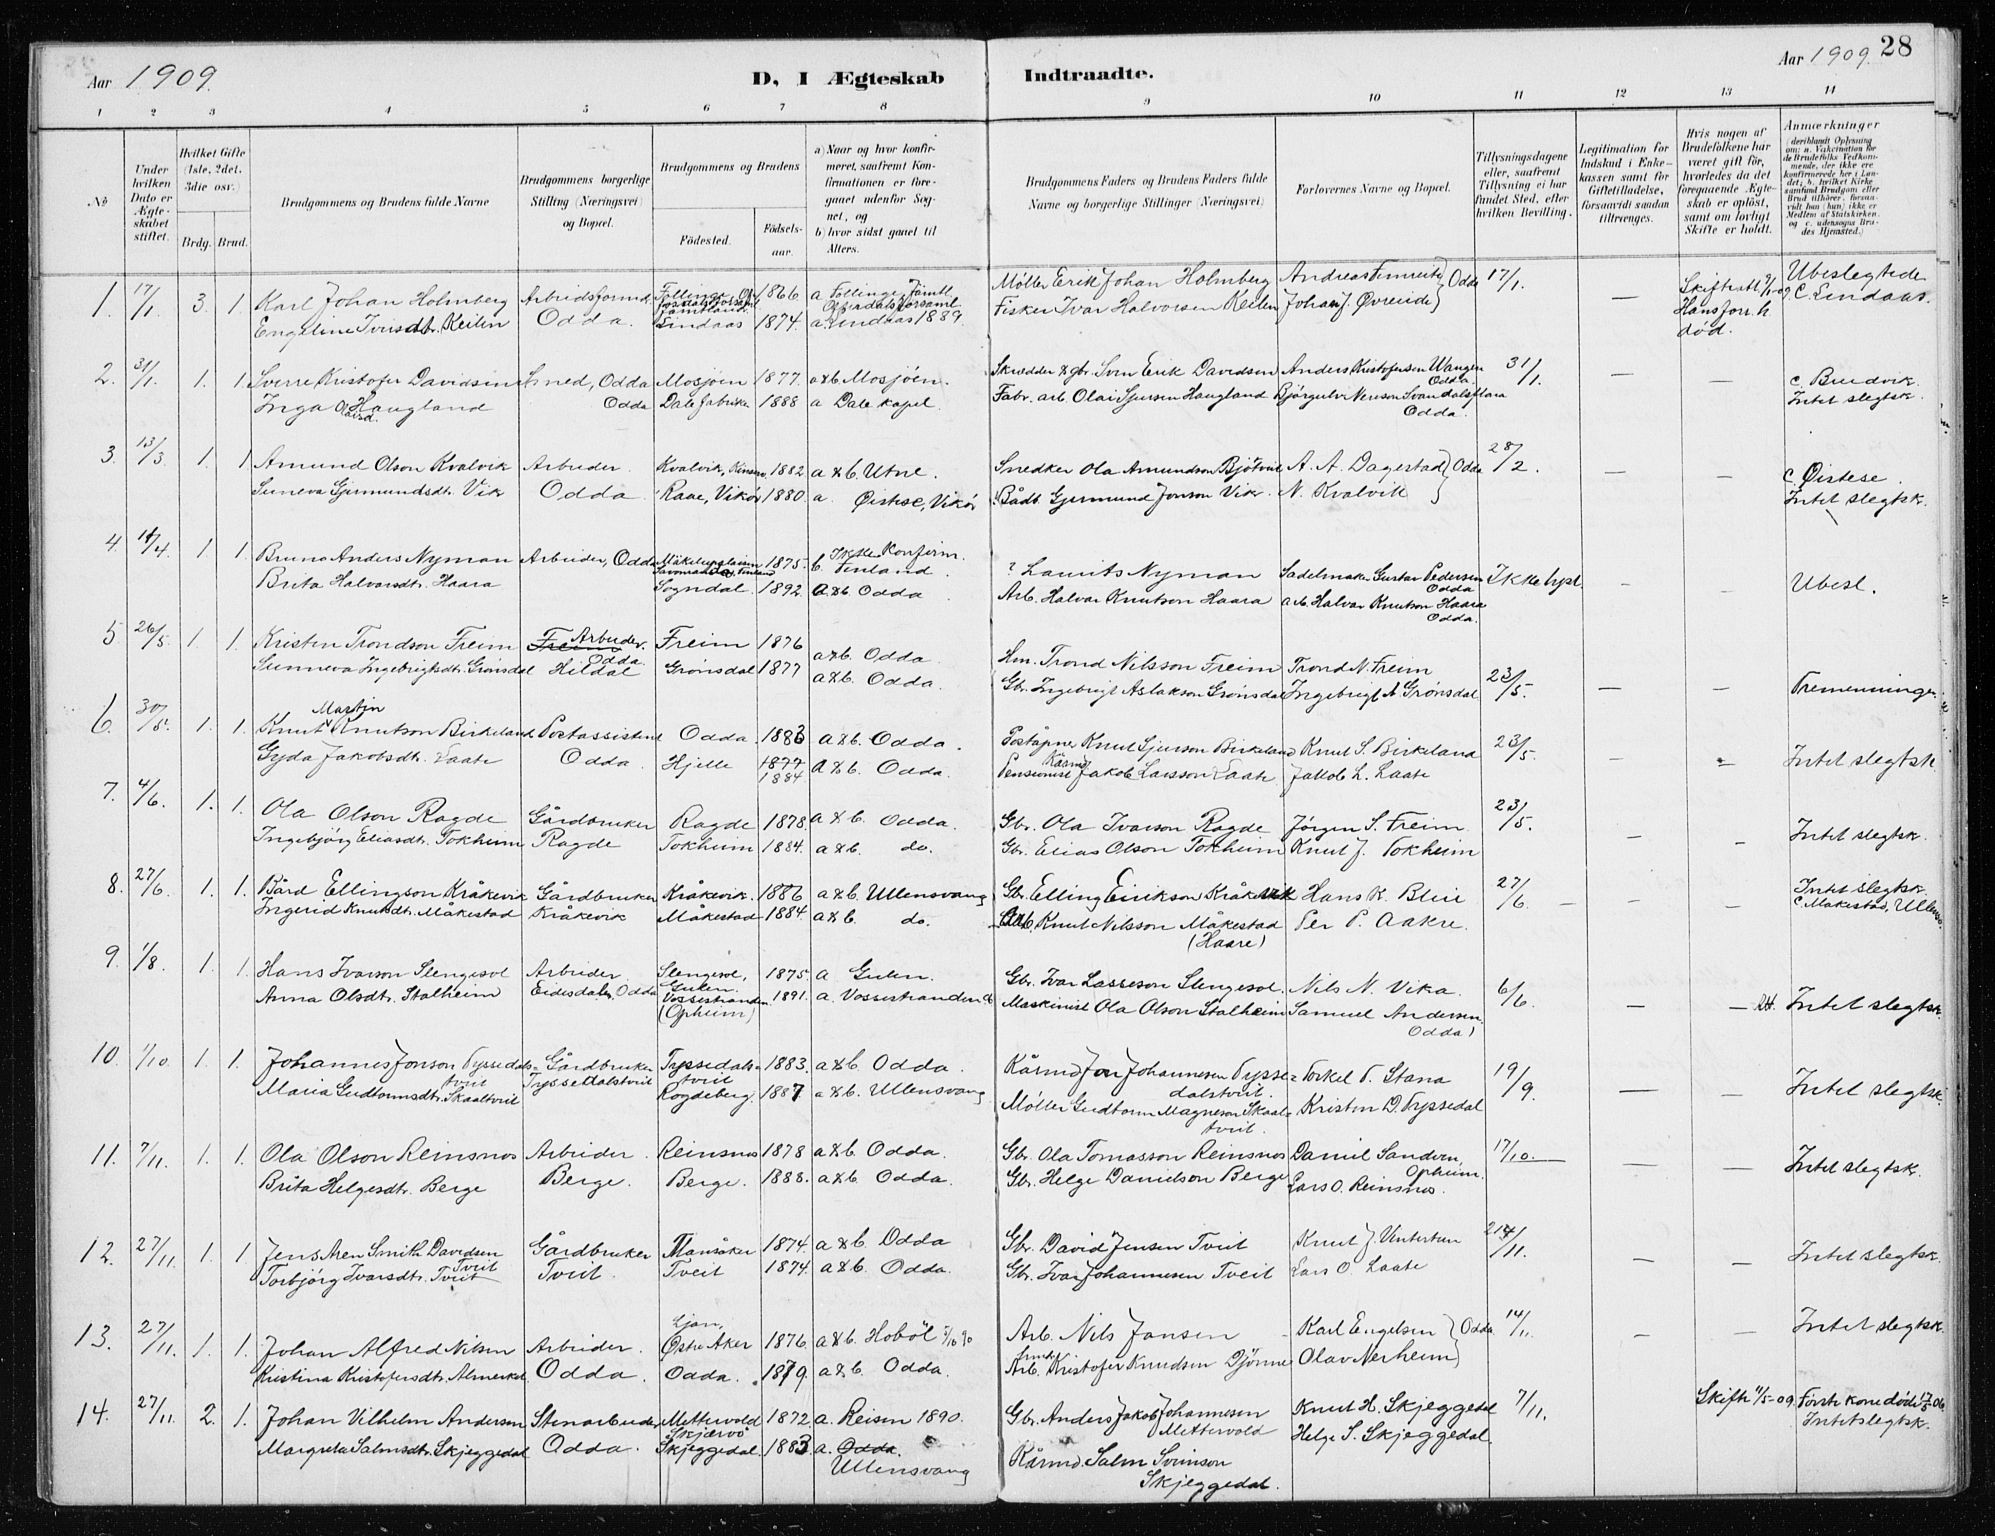 Aar 1909.
D, I Ægteskab Indtraadte.
Aar 1909. 28
1 2 3 4 5 6 7 8 9 10 11 12 13 14
№
Under hvilken Dato er Ægteskabet stiftet.
Hvilket Gifte (1ste, 2det, 3die osv.)
Brdg. Brud.
Brudgommens og Brudens fulde Navne
Brudgommens borgerlige Stilling (Næringsvei) og Bopæl.
Brudgommens og Brudens
Fødested. Fødselsaar.
a) Naar og hvor konfirmeret, saafremt Konfirmationen er foregaaet udenfor Sognet, og
b) hvor sidst gaaet til Alters.
Brudgommens Faders og Brudens Faders fulde Navne og borgerlige Stillinger (Næringsvei)
Forlovernes Navne og Bopæl.
Tillysningsdagene eller, saafremt Tillysning ei har fundet Sted, efter hvilken Bevilling.
Legitimation for Indskud i Enkekassen samt for Giftetilladelse, forsaavidt saadan tiltrænges.
Hvis nogen af Brudefolkene har været gift før, hvorledes da det foregaaende Ægteskab er opløst, samt om lovligt Skifte er holdt.
Anmærkninger
1. 17/1. 3. 1. Karl Johan Holmberg Arbeidsformd. 1866 Møller Erik Johan Holmberg Andreas Timreite } Odda 17/1. — Ubeslegtede
Engeline Iversdt. Keilen Odda. Lindaas 1874. a. Lindaas 1889. Fisker Ivar Halvorsen Keilen Johan J. Øvreeide Hans forr. h. død. C. Lindaas.
2. 31/1. 1. 1. Sverre Kristofer Davidsen Smed, Odda Mosjøen 1877. a&b Mosjöen. Skrædder & gbr. Sven Erik Davidsen Anders Kristofersen Wangen Odda. 31/1. — — c. Bredvik.
Inga Olavsd. Haugland Odda Dale fabrikk 1888 a Dale kapel. Fabr. arb Olai Sjursen Haugland Bjørgulv Neresen Svandalsflona Odda. Intet slegtsk.
3. 13/3. 1. 1. Amund Olson Kvalvik Arbeider. Kvalvik, Kinserv. 1882 a&b. Utne. Snedker Ola Amundson Bjötveit A. A. Dagestad } Odda 28/2. — — C. Øistese.
Suneva Gjermundsdt. Vik Odda Raae, Vikör 1880. a. Øistese, Vikör Bådb. Gjermund Jonson Vik. N. Kvalvik Intet slegtsk.
4. 11/4. 1 1. Bruno Anders Nyman Arbeider, Odda 1875. Ikke Konfirm. b. Finland. ? Laurits Nyman Sadelmaker Gustav Pedersen Odda Ikke lyst — — Ubesl.
Brita Halvarsdt. Haara Sogndal. 1892. a&b. Odda. Arb. Halvar Knutson Haara arb. Halvar Knutson Haara Odda.
5 26/5. 1. 1. Kristen Trondson Freim Arbeider. Odda Freim 1876 a&b. Odda. Hm. Trond Nilsson Freim Trond N. Freim 23/5. — — Tremenninger.
Sunneva Ingebrigtsdt. Grønsdal Hildal Grønsdal 1877 a&b. Odda. Gbr. Ingebrigt Aslakson Grønsdal Ingebrigt A Grønsdal
6. 30/5. 1. 1. Knut Martin Knutson Birkeland Postassistent Odda. 1883 a&b. Odda. Poståpner Knut Sjurson Birkeland Knut S. Birkeland 23/5. — — Intet slegtsk.
Gyda Jakobsdt. Laate Odda. Hjelle 1877 1884 a&b. Odda. Pensionist Kårmd. Jakob Larsson Laate Jakob L. Laate
7. 4/6. 1. 1. Ola Olson Ragde Gårdbruker Ragde 1878. a&b. Odda. Gbr. Ola Ivarson Ragde. Jørgen S. Freim. 23/5. — — Intet slegtsk.
Ingebjörg Eliasdt. Tokheim Ragde Tokheim 1884. a&b. do. Gbr. Elias Olson Tokheim Knut J. Tokheim
8. 27/6. 1. 1. Bård Ellingson Kråkevik Gårdbruker Kråkevik. 1886 a&b. Ullensvang Gbr. Elling Eirikson Kråkevik Hans K. Bleie 27/6. — — Intet slegtsk.
Ingerid Knutsdt. Måkestad Kråkevik Måkestad 1884. a&b. do. Arb. Knut Nilsson Måkestad (Haare) Per P. Aakre. c. Måkestad, Ullensv.
9. 1/8. 1. 1. Hans Ivarson Slengesol Arbeider. Slengesol, Gulen. 1875 a Gulen. Gbr. Ivar Lasseson Slengesol. Nils N. Vika. 6/6. — — Intet slegtsk.
Anna Olsdt. Stalheim Eidesdalen, Odda Vossestranden. (Opheim) 1891. a. Vossestranden Maskinist Ola Olson Stalheim Samuel Andersen. Odda)
10. 1/10. 1. 1. Johannes Jonson Tyssedalstveit Gårdbruker Tyssedalstveit 1883. a&b. Odda. Kårmd Jon Johannesen Tyssedalstveit. Torkel T. Stana 19/9. — — Intet slegtsk.
Maria Gudtormsdt. Skaaltveit Tyssedalstveit Rogdeberg. 1887 a&b. Ullensvang Møller Gudtorm Magneson Skaaltveit. Kristen D. Tyssedal
11. 7/11. 1. 1. Ola Olson Reinsnos Arbeider. Reinsnos 1878 a&b. Odda. Gbr. Ola Tomasson Reinsnos Daniel Sandven Opheim. 17/10. — — Intet slegtsk.
Brita Helgesdt. Berge Berge. Berge. 1888. a&b. Odda. Gbr. Helge Danielson Berge Lars O. Reinsnos.
12. 27/11. 1. 1 Jens Aren Smith Davidsen Tveit Gårdbruker Mansåker 1874. a&b. Odda Gbr. David Jensen Tveit Knut J. Vintertun 21/11. — — Intet slegtsk.
Torbjörg Ivarsdt. Tveit Tveit. Tveit 1874. a&b. Odda. Gbr. Ivar Johannesen Tveit Lars O. Laate
13. 27/11. 1. 1. Johan Alfred Nilsen Arbeider. Ljan, Østre Aker 1876. a&b. Hoböl Arb. Nils Jansen Karl Engelsen } Odda 14/11. Intet slegtsk.
Kristina Kristofersdt. Almerket Odda. Odda. 1879. a&b Odda. Arb. Kristofer Knudsen Djönne Olav Nerheim
14. 27/11. 2. 1. Johan Vilhelm Andersen Stenarbeider Mettevold Skjærvö 1872 a. Reisen 1890. Gbr. Anders Jakob Johannesen Mettevold Knut H. Skjeggedal 7/11. Skifte 11/5-09. Første kone död
Margreta Salmsdt. Skjeggedal Odda. Skjeggedal. 1883 a. Odda. Ullensvang Kårmd. Salm Sveinson Skjeggedal. Helge S. Skjeggedal. Intet slegtsk.